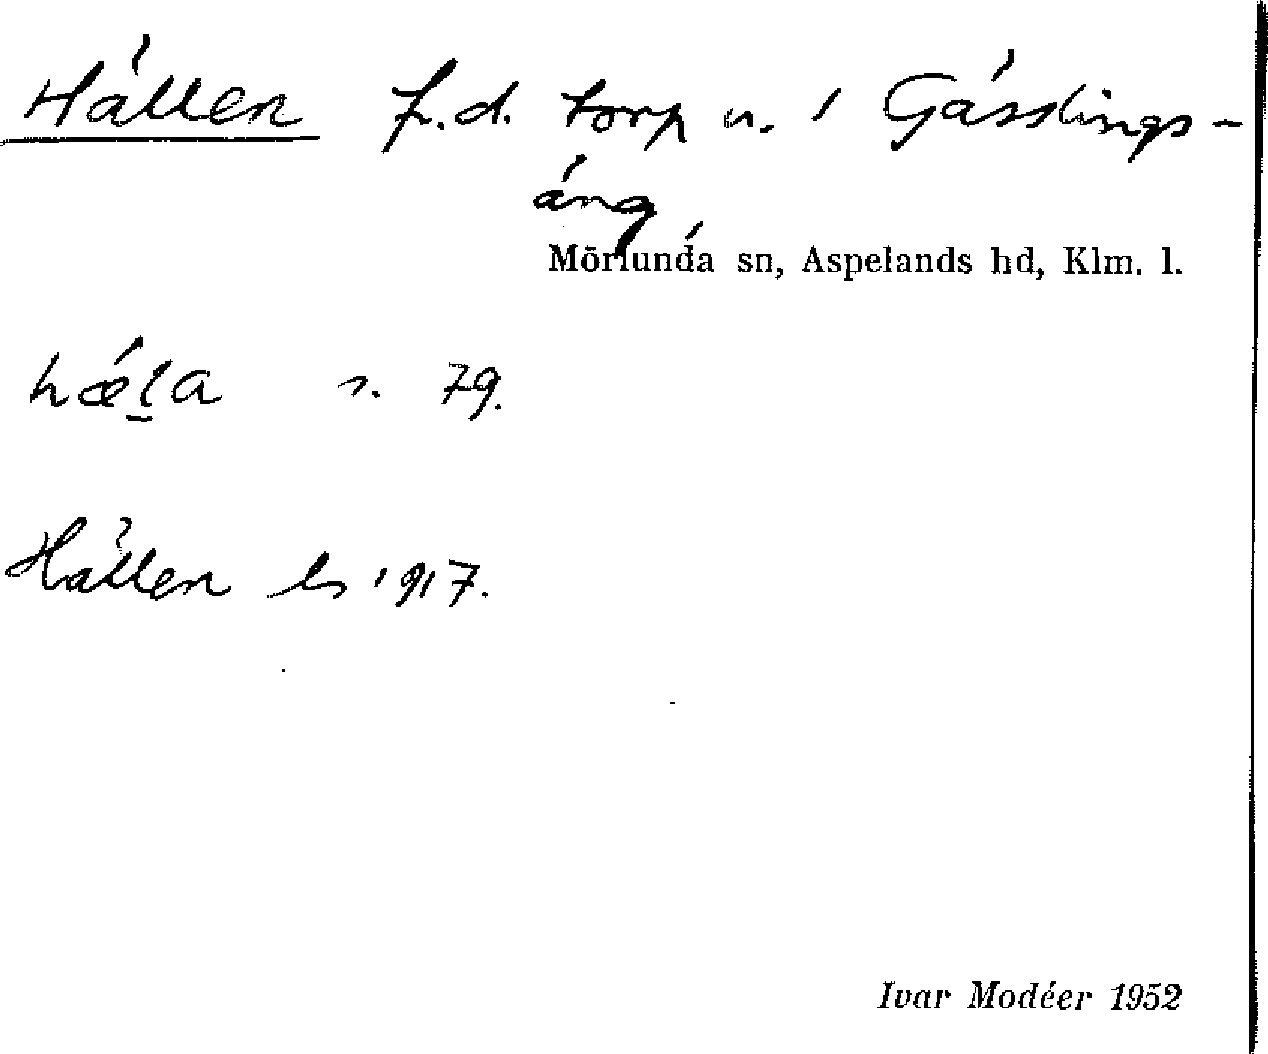 Hällen f.d. torp u. / Gässlings-
äng
Mörlunda sn, Aspelands hd, Klm. l.
s. 79.
Hällen 1917.
Ivar Modéer 1952